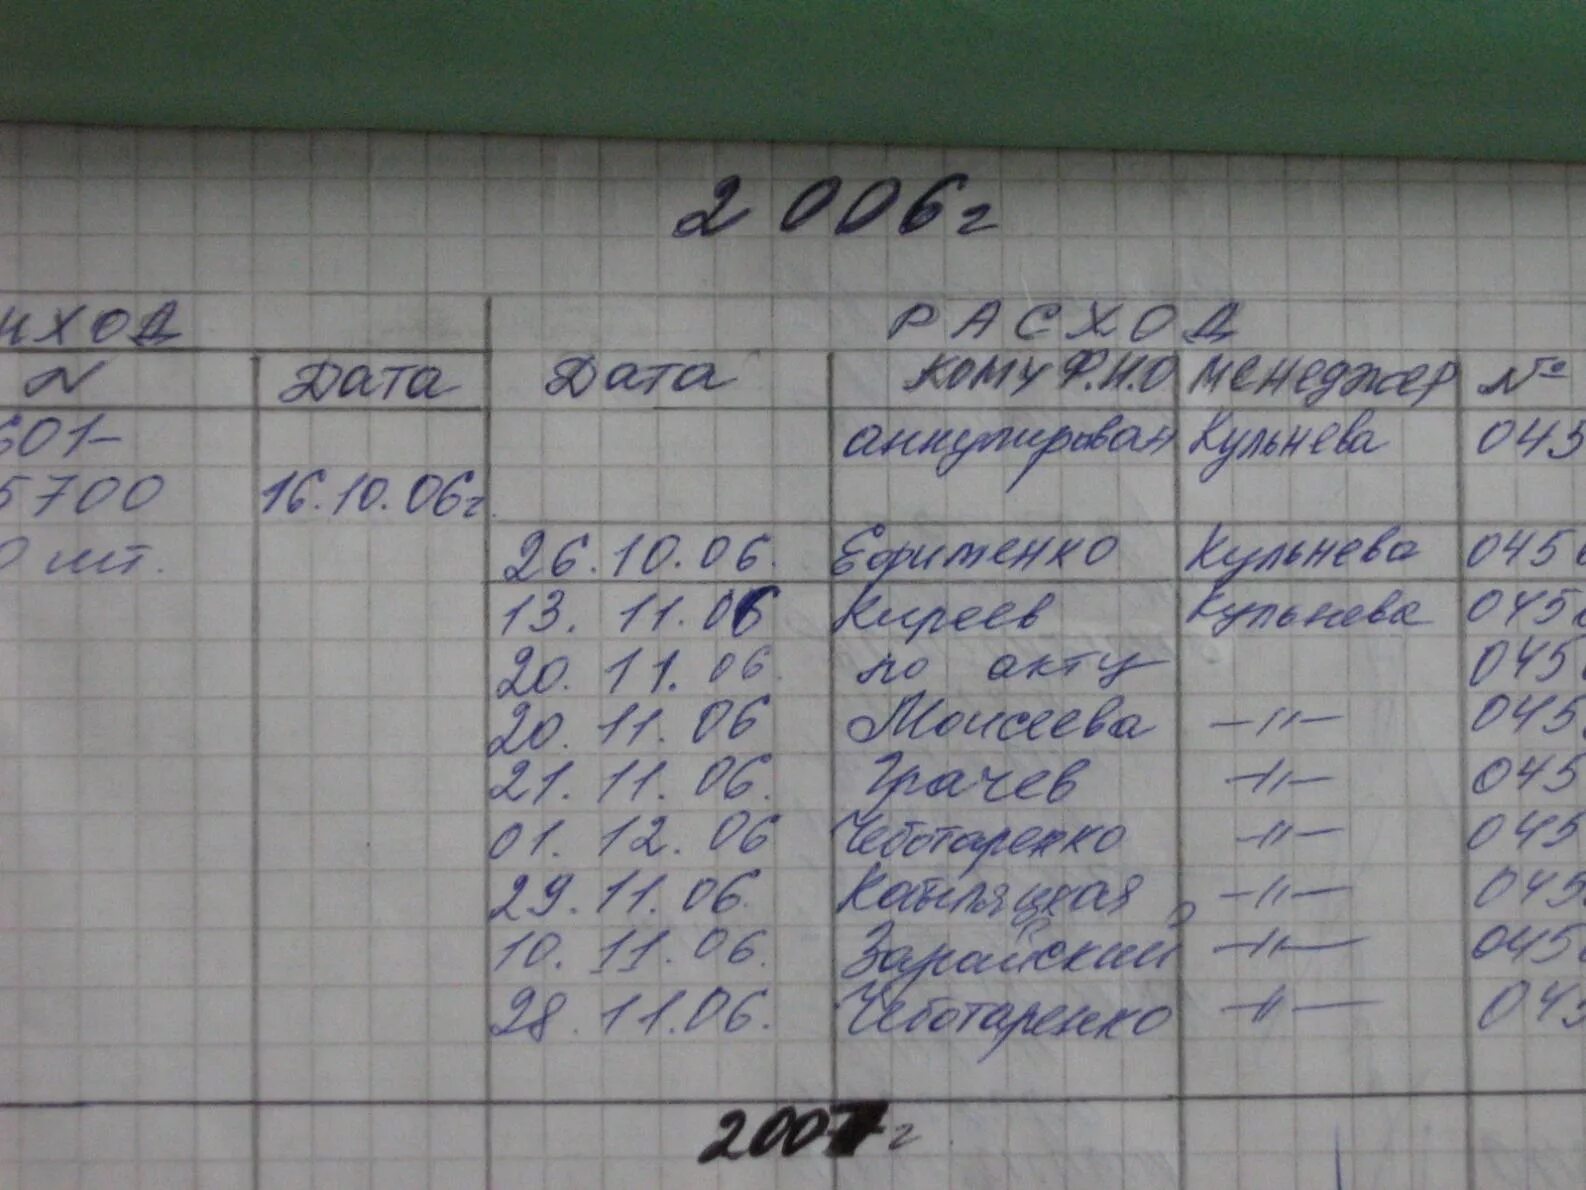 2006г
ИХОД РАСХОД
N Дата Дата кому Ф.И.О менеджер №
601- аннулирован Кульнева 045
5700 16.10.06г.
0 шт. 26.10.06. Ефименко Кульнева 045
13. 11.06 Киреев Кульнева 045
20. 11. 06. по акту 045
20. 11. 06 Моисеева —"— 045
21. 11. 06. Грачев —"— 045
01. 12. 06 Чеботаренко —"— 045
29. 11. 06. —"— 045
10. 11. 06. Зарайский —"— 045
28. 11. 06. Чеботаренко —"— 045
2007г